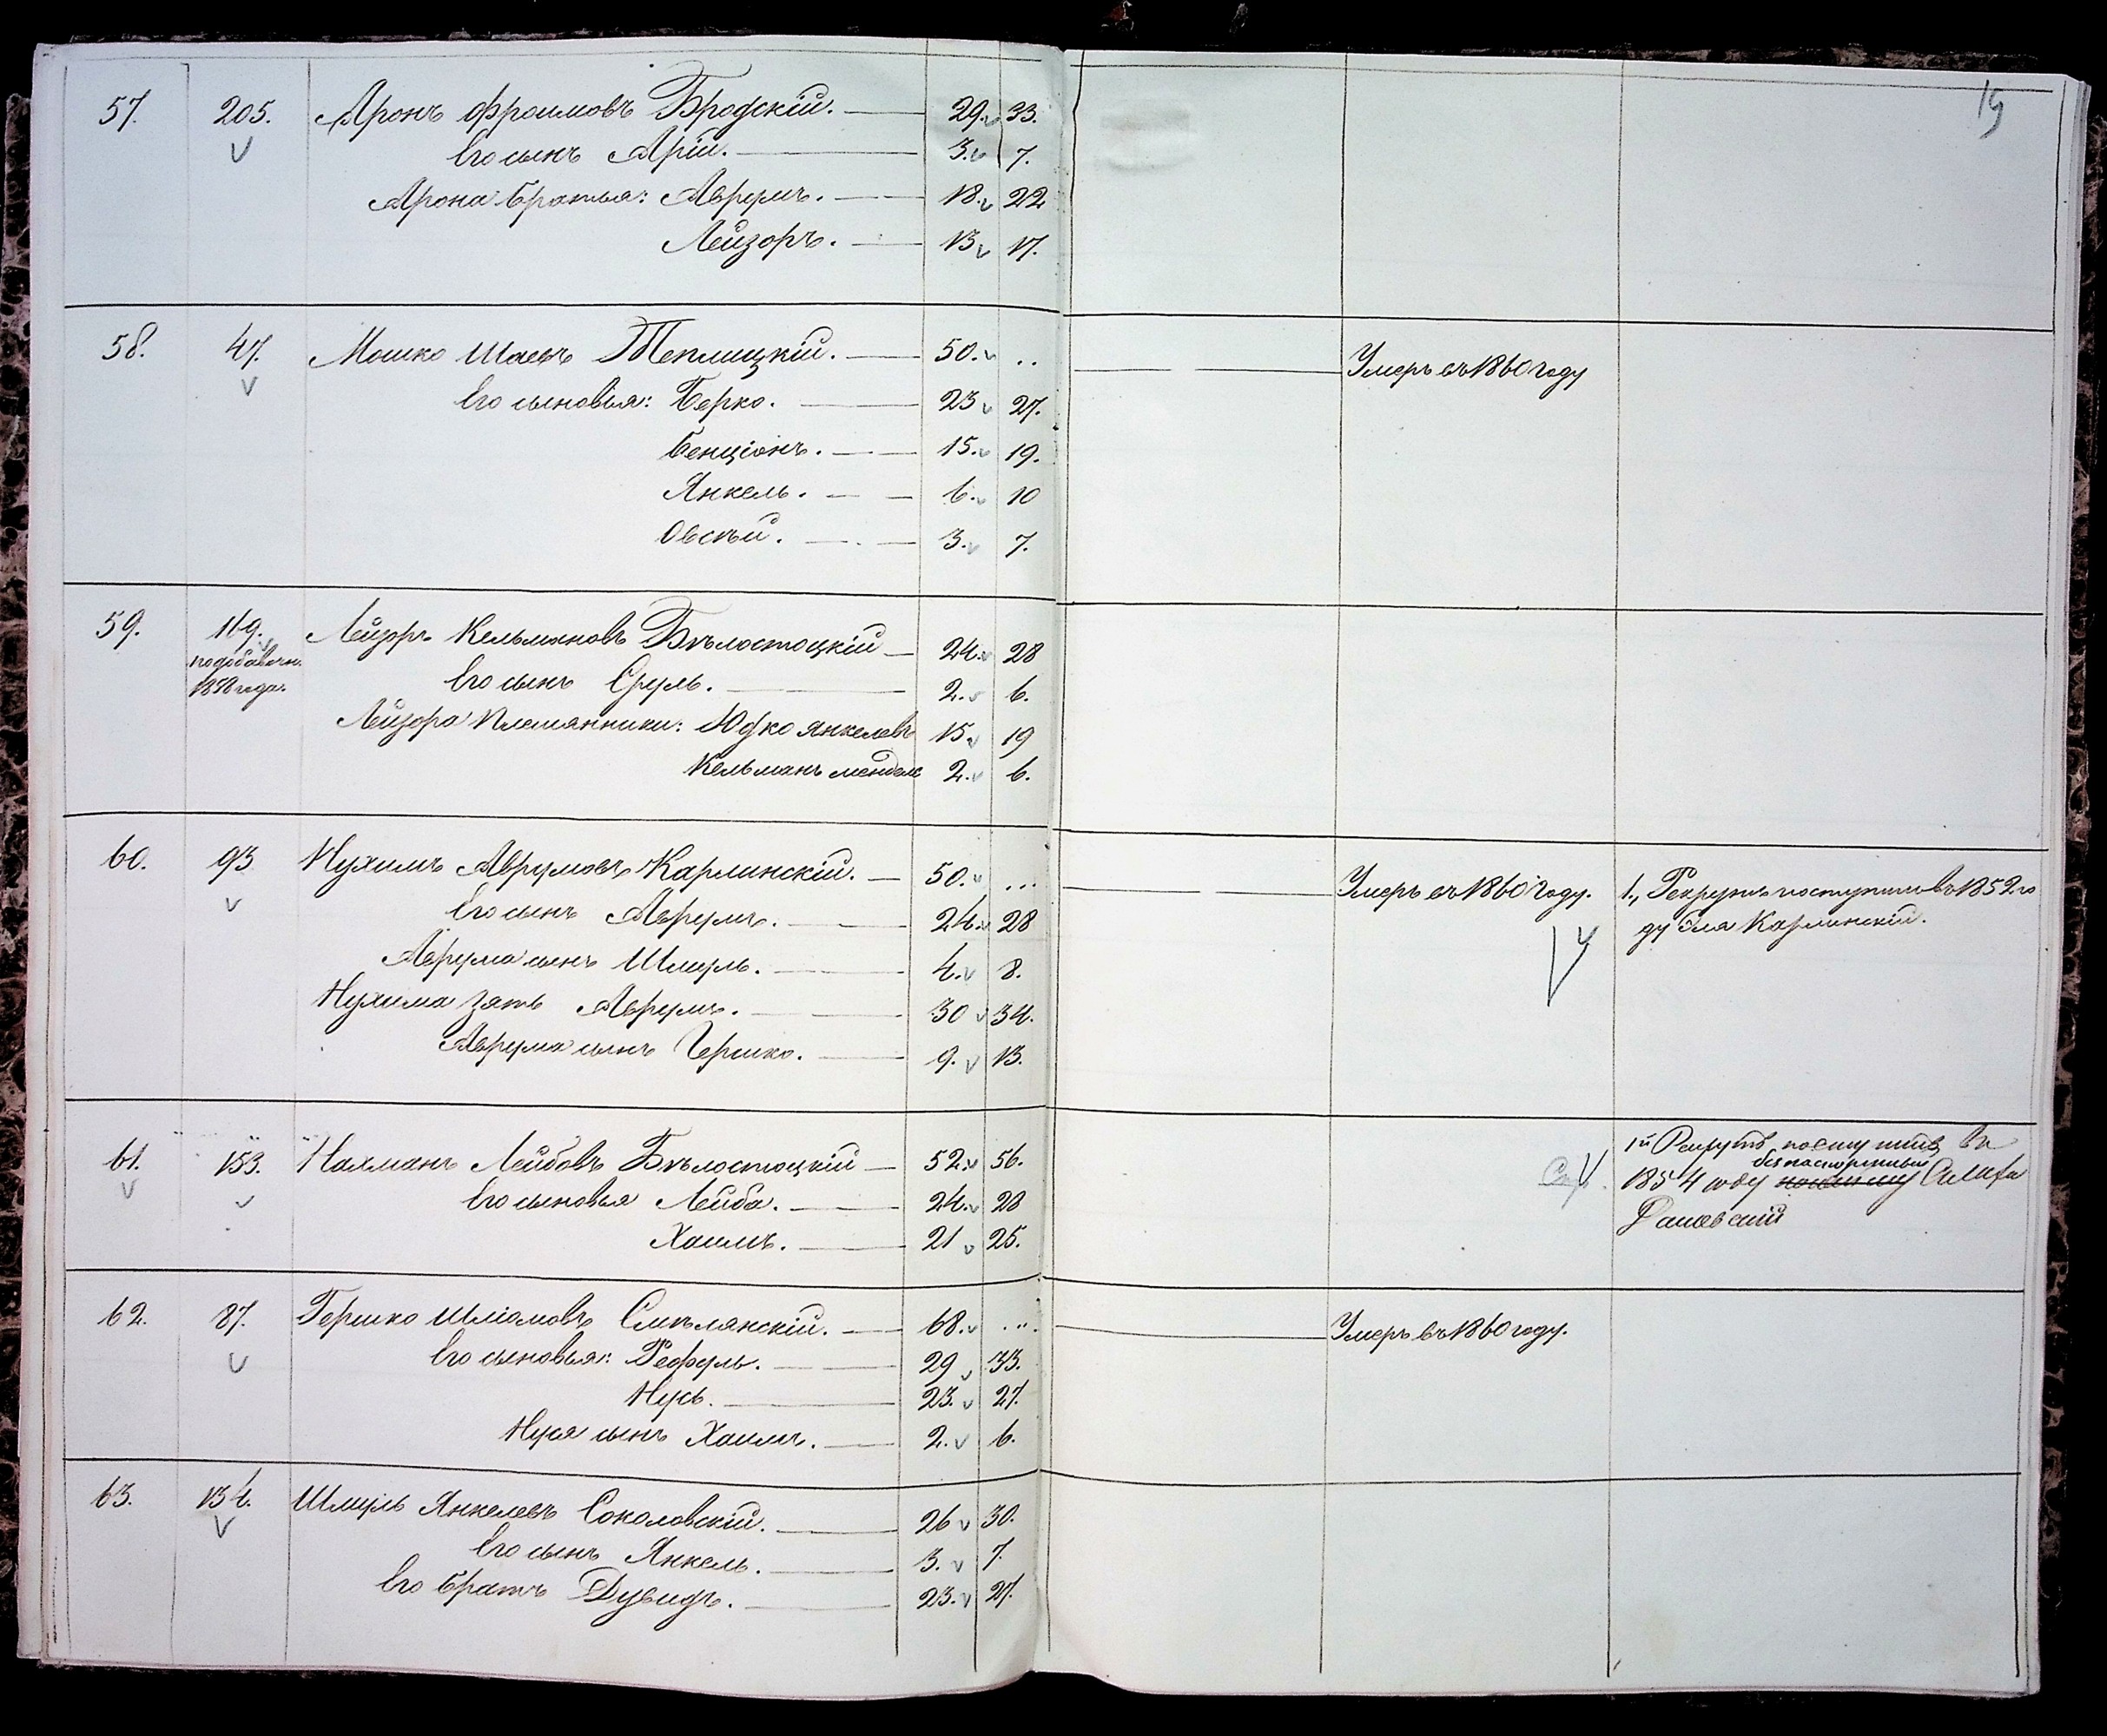 19
57. 205. Аронъ Фроимовъ Бродскій. 29. 33.
Его сынъ Арій. 3. 7.
Арона братья: Аврумъ. 18. 22
Лейзоръ. 13 17.
58. 47. Мошко Шаевъ Теплицкій. 50. .. Умеръ въ 1860 году
Его сыновья: Берко. 23 27.
Бенціонъ. 15. 19.
Янкель. 6. 10
Овсѣй. 3. 7.
59. 169. Лейзоръ Кельмановъ Бѣлостоцкій 24. 28
подобавочн.
1858 года. Его сынъ Сруль. 2. 6.
Лейзора племянники: Юдко Янкелевъ 15. 19
Кельманъ Мендел 2. 6.
60. 93 Нухимъ Аврумовъ Карлинскій. 50. ... Умеръ въ 1860 году. 1., Рекрутъ поступилъ въ 1852 го
ду Эля Карлинскій.
Его сынъ Аврумъ. 24. 28
Аврума сынъ Шмуль. 4. 8.
Нухима зять Аврумъ. 30 34.
Аврума сынъ Гершко. 9. 13.
61. 153. Нахманъ Лейбовъ Бѣлостоцкій 52. 56. 1й Рекрутъ поступилъ въ
безпаспортный
1854 году
Его сыновья Лейба. 24. 28
Хаимъ. 21 25.
62. 87. Гершко Шліомовъ Смѣлянскій. 68. ... Умеръ въ 1860 году.
Его сыновья: Рефуль. 29 33.
Нусь. 23. 27.
Нуся сынъ Хаимъ. 2. 6.
63. 134. Шмуль Янкелевъ Соколовскій. 26 30.
Его сынъ Янкель. 3. 7.
Его братъ Дувидъ. 23. 27.